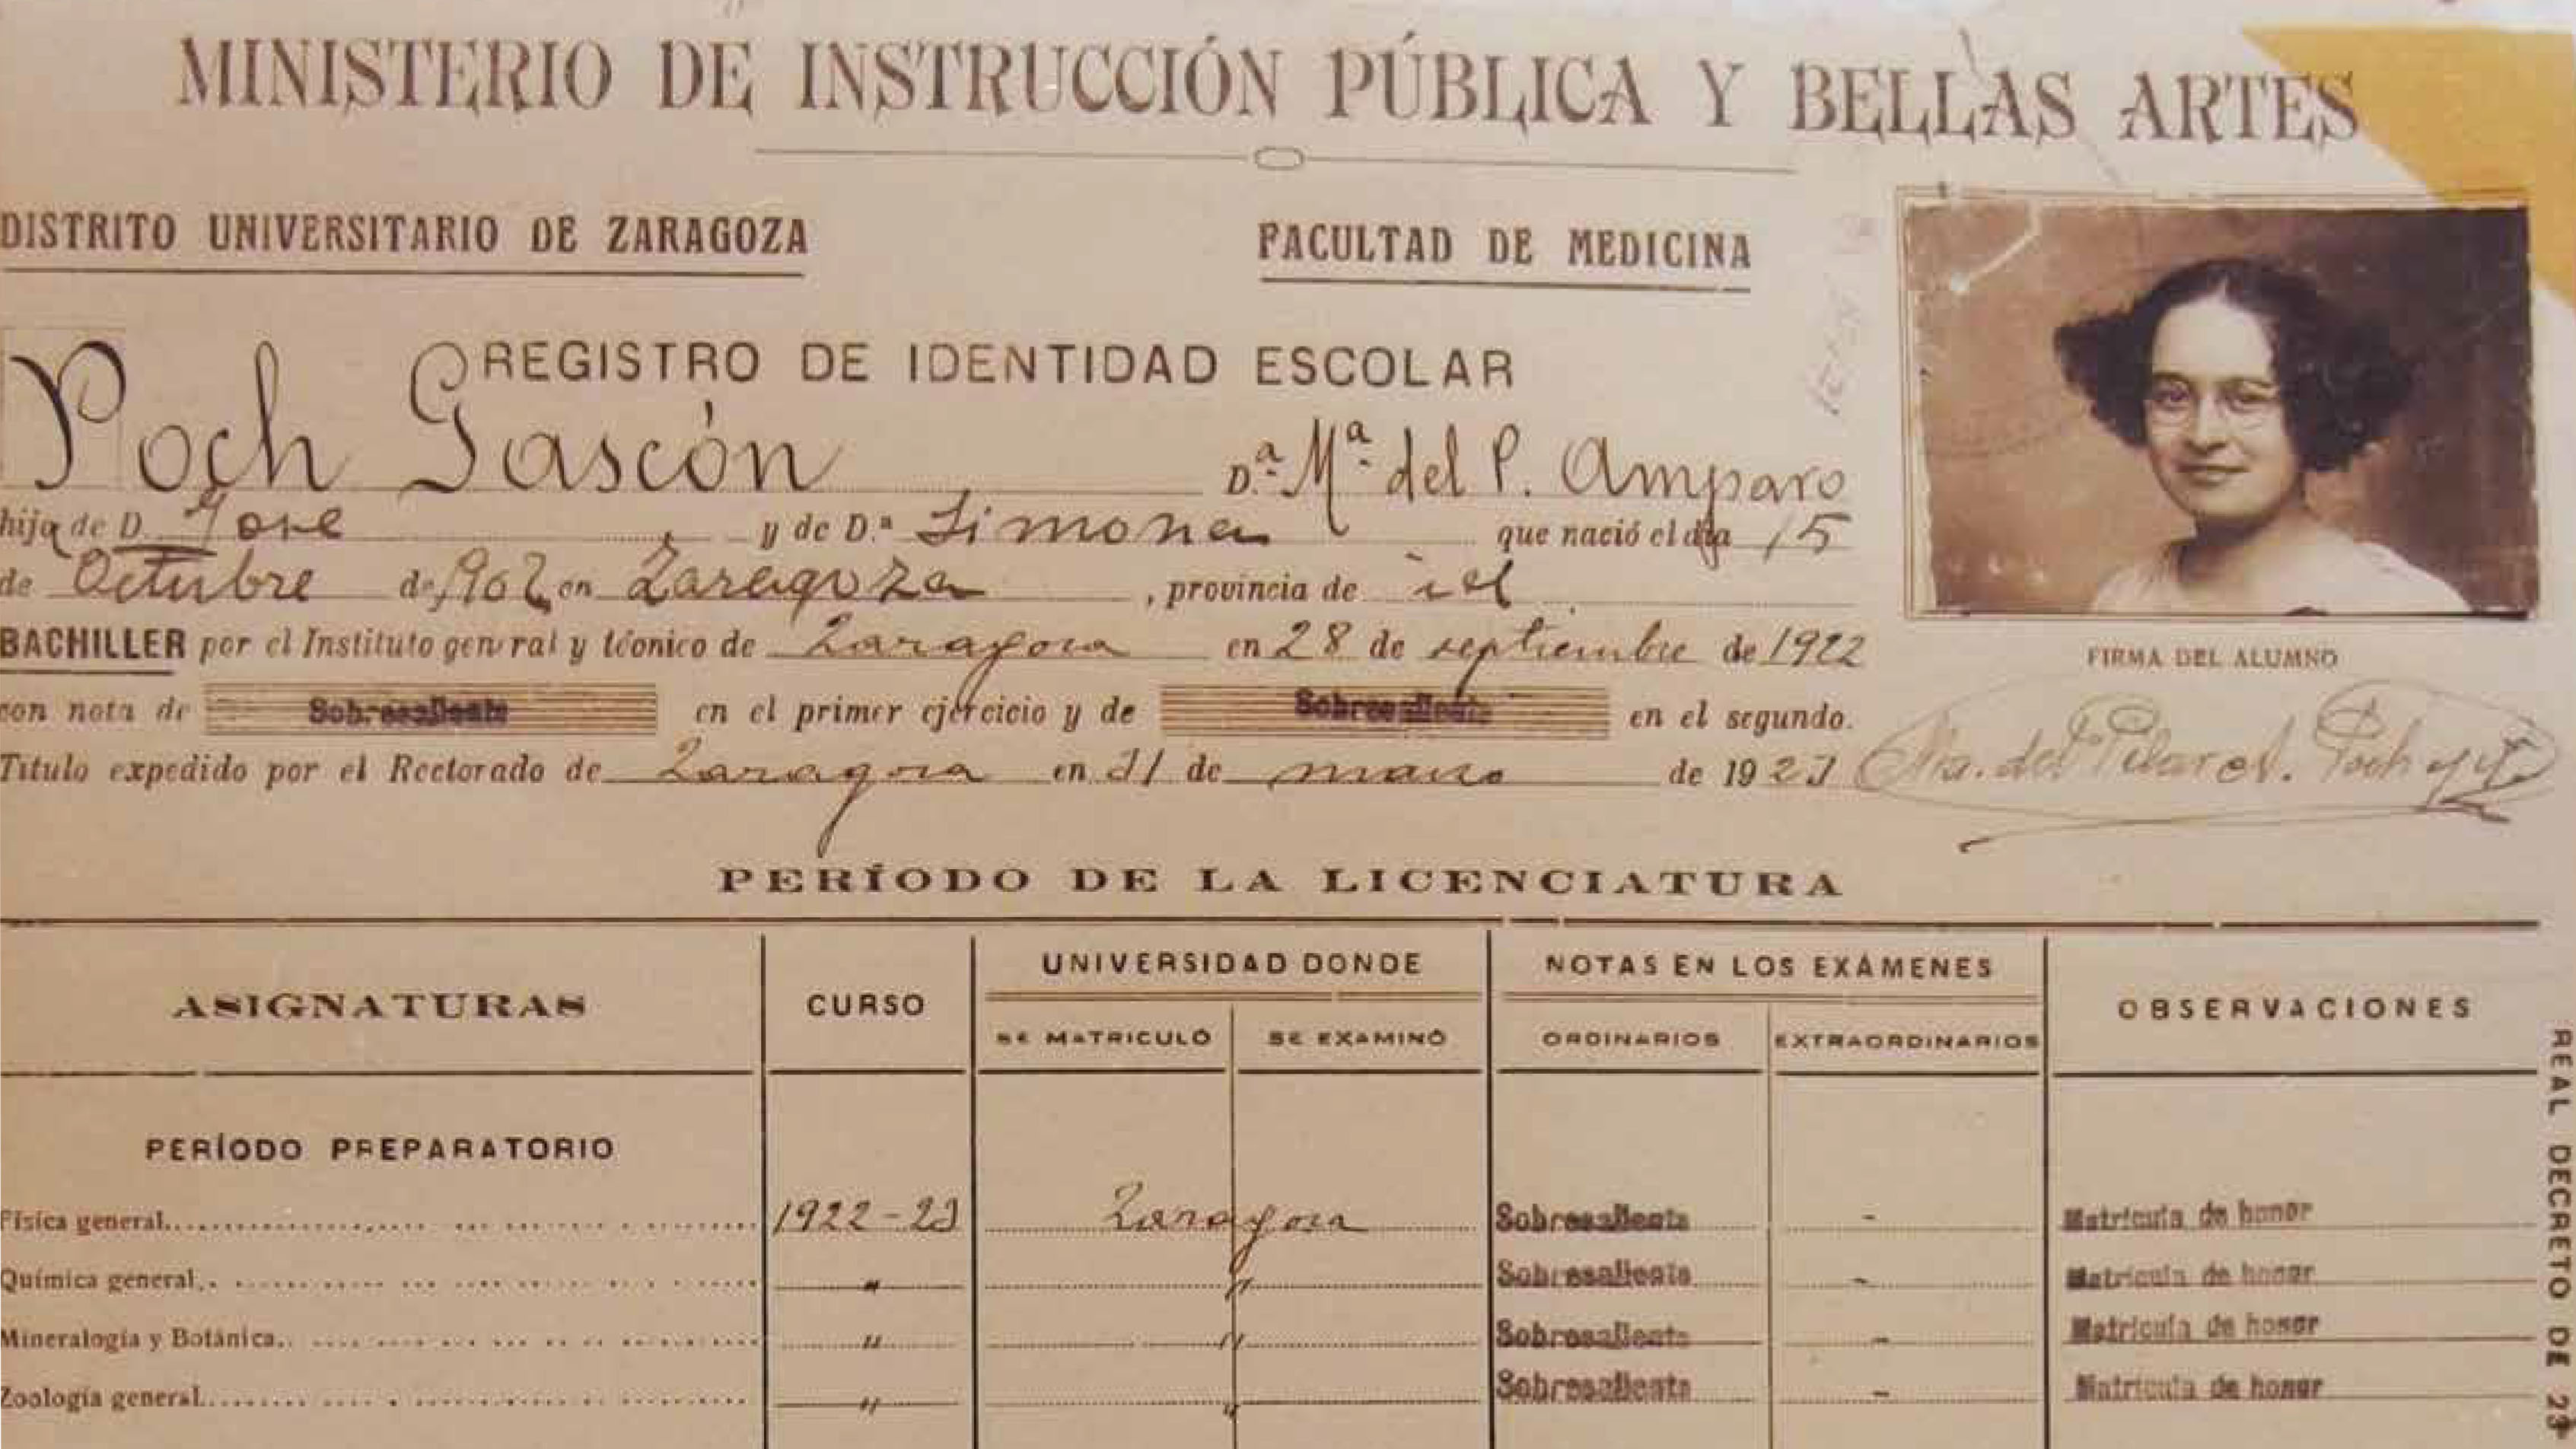 MINISTERIO DE INSTRUCCIÓN PÚBLICA Y BELLAS ARTES
DISTRITO UNIVERSITARIO DE ZARAGOZA FACULTAD DE MEDICINA
REGISTRO DE IDENTIDAD ESCOLAR
Poch Gascón D.ª Mª del P. Amparo
hija de D. José y de D.ª Simona que nació el día 15
de Octubre de 1902 en Zaragoza, provincia de id
BACHILLER por el Instituto general y técnico de Zaragoza en 28 de septiembre de 1922
con nota de Sobresaliente en el primer ejercicio y de Sobresaliente en el segundo.
Título expedido por el Rectorado de Zaragoza en 31 de marzo de 1923
FIRMA DEL ALUMNO
Ma. del Pilar A. Poch y G.
PERÍODO DE LA LICENCIATURA
ASIGNATURAS CURSO UNIVERSIDAD DONDE NOTAS EN LOS EXÁMENES OBSERVACIONES
SE MATRICULÓ SE EXAMINÓ ORDINARIOS EXTRAORDINARIOS
PERÍODO PREPARATORIO
Física general 1922-23 Zaragoza Sobresaliente - Matrícula de honor
Química general " " Sobresaliente - Matrícula de honor
Mineralogía y Botánica " " Sobresaliente - Matrícula de honor
Zoología general " " Sobresaliente - Matrícula de honor
REAL DECRETO DE 23